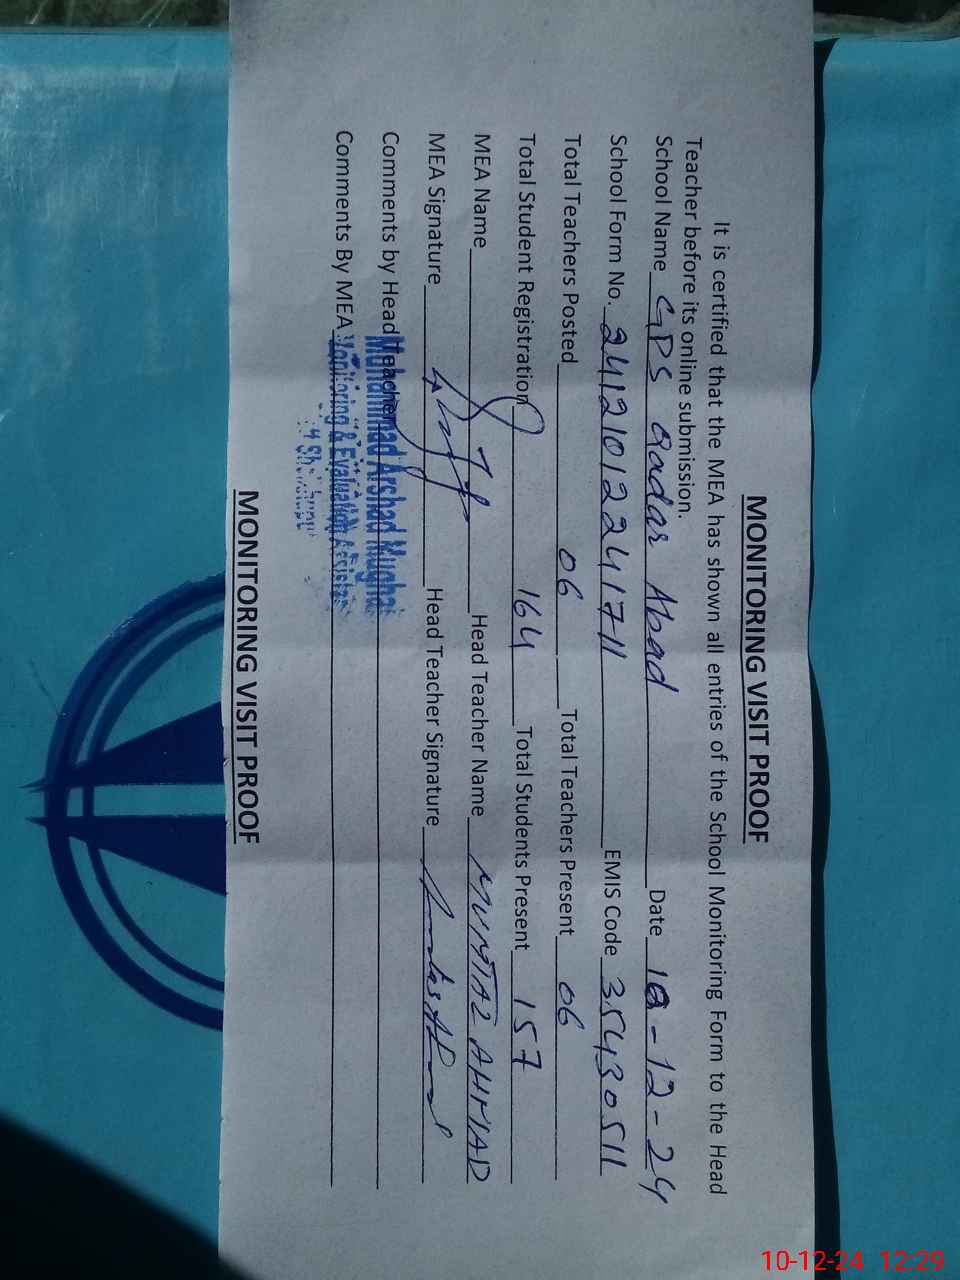 MONITORING VISIT PROOF
It is certified that the MEA has shown all entries of the School Monitoring Form to the Head
Teacher before its online submission.
School Name GPS Qadar Abad Date 10-12-24
School Form No. 24121012241711 EMIS Code 35430511
Total Teachers Posted 06 Total Teachers Present 06
Total Student Registration 164 Total Students Present 157
MEA Name Head Teacher Name MUMTAZ AHMAD
MEA Signature Head Teacher Signature
Comments by Head Teacher
Muhammad Arshad Mughal
Comments By MEA
Monitoring & Evaluation Assistant
MONITORING VISIT PROOF
10-12-24 12:29